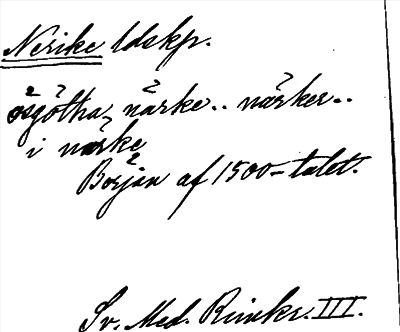 Nerike ldskp.
ösgötha, närke.. närker..
i närke
Början af 1500-talet.
Sv. Med. Rimkr. III.